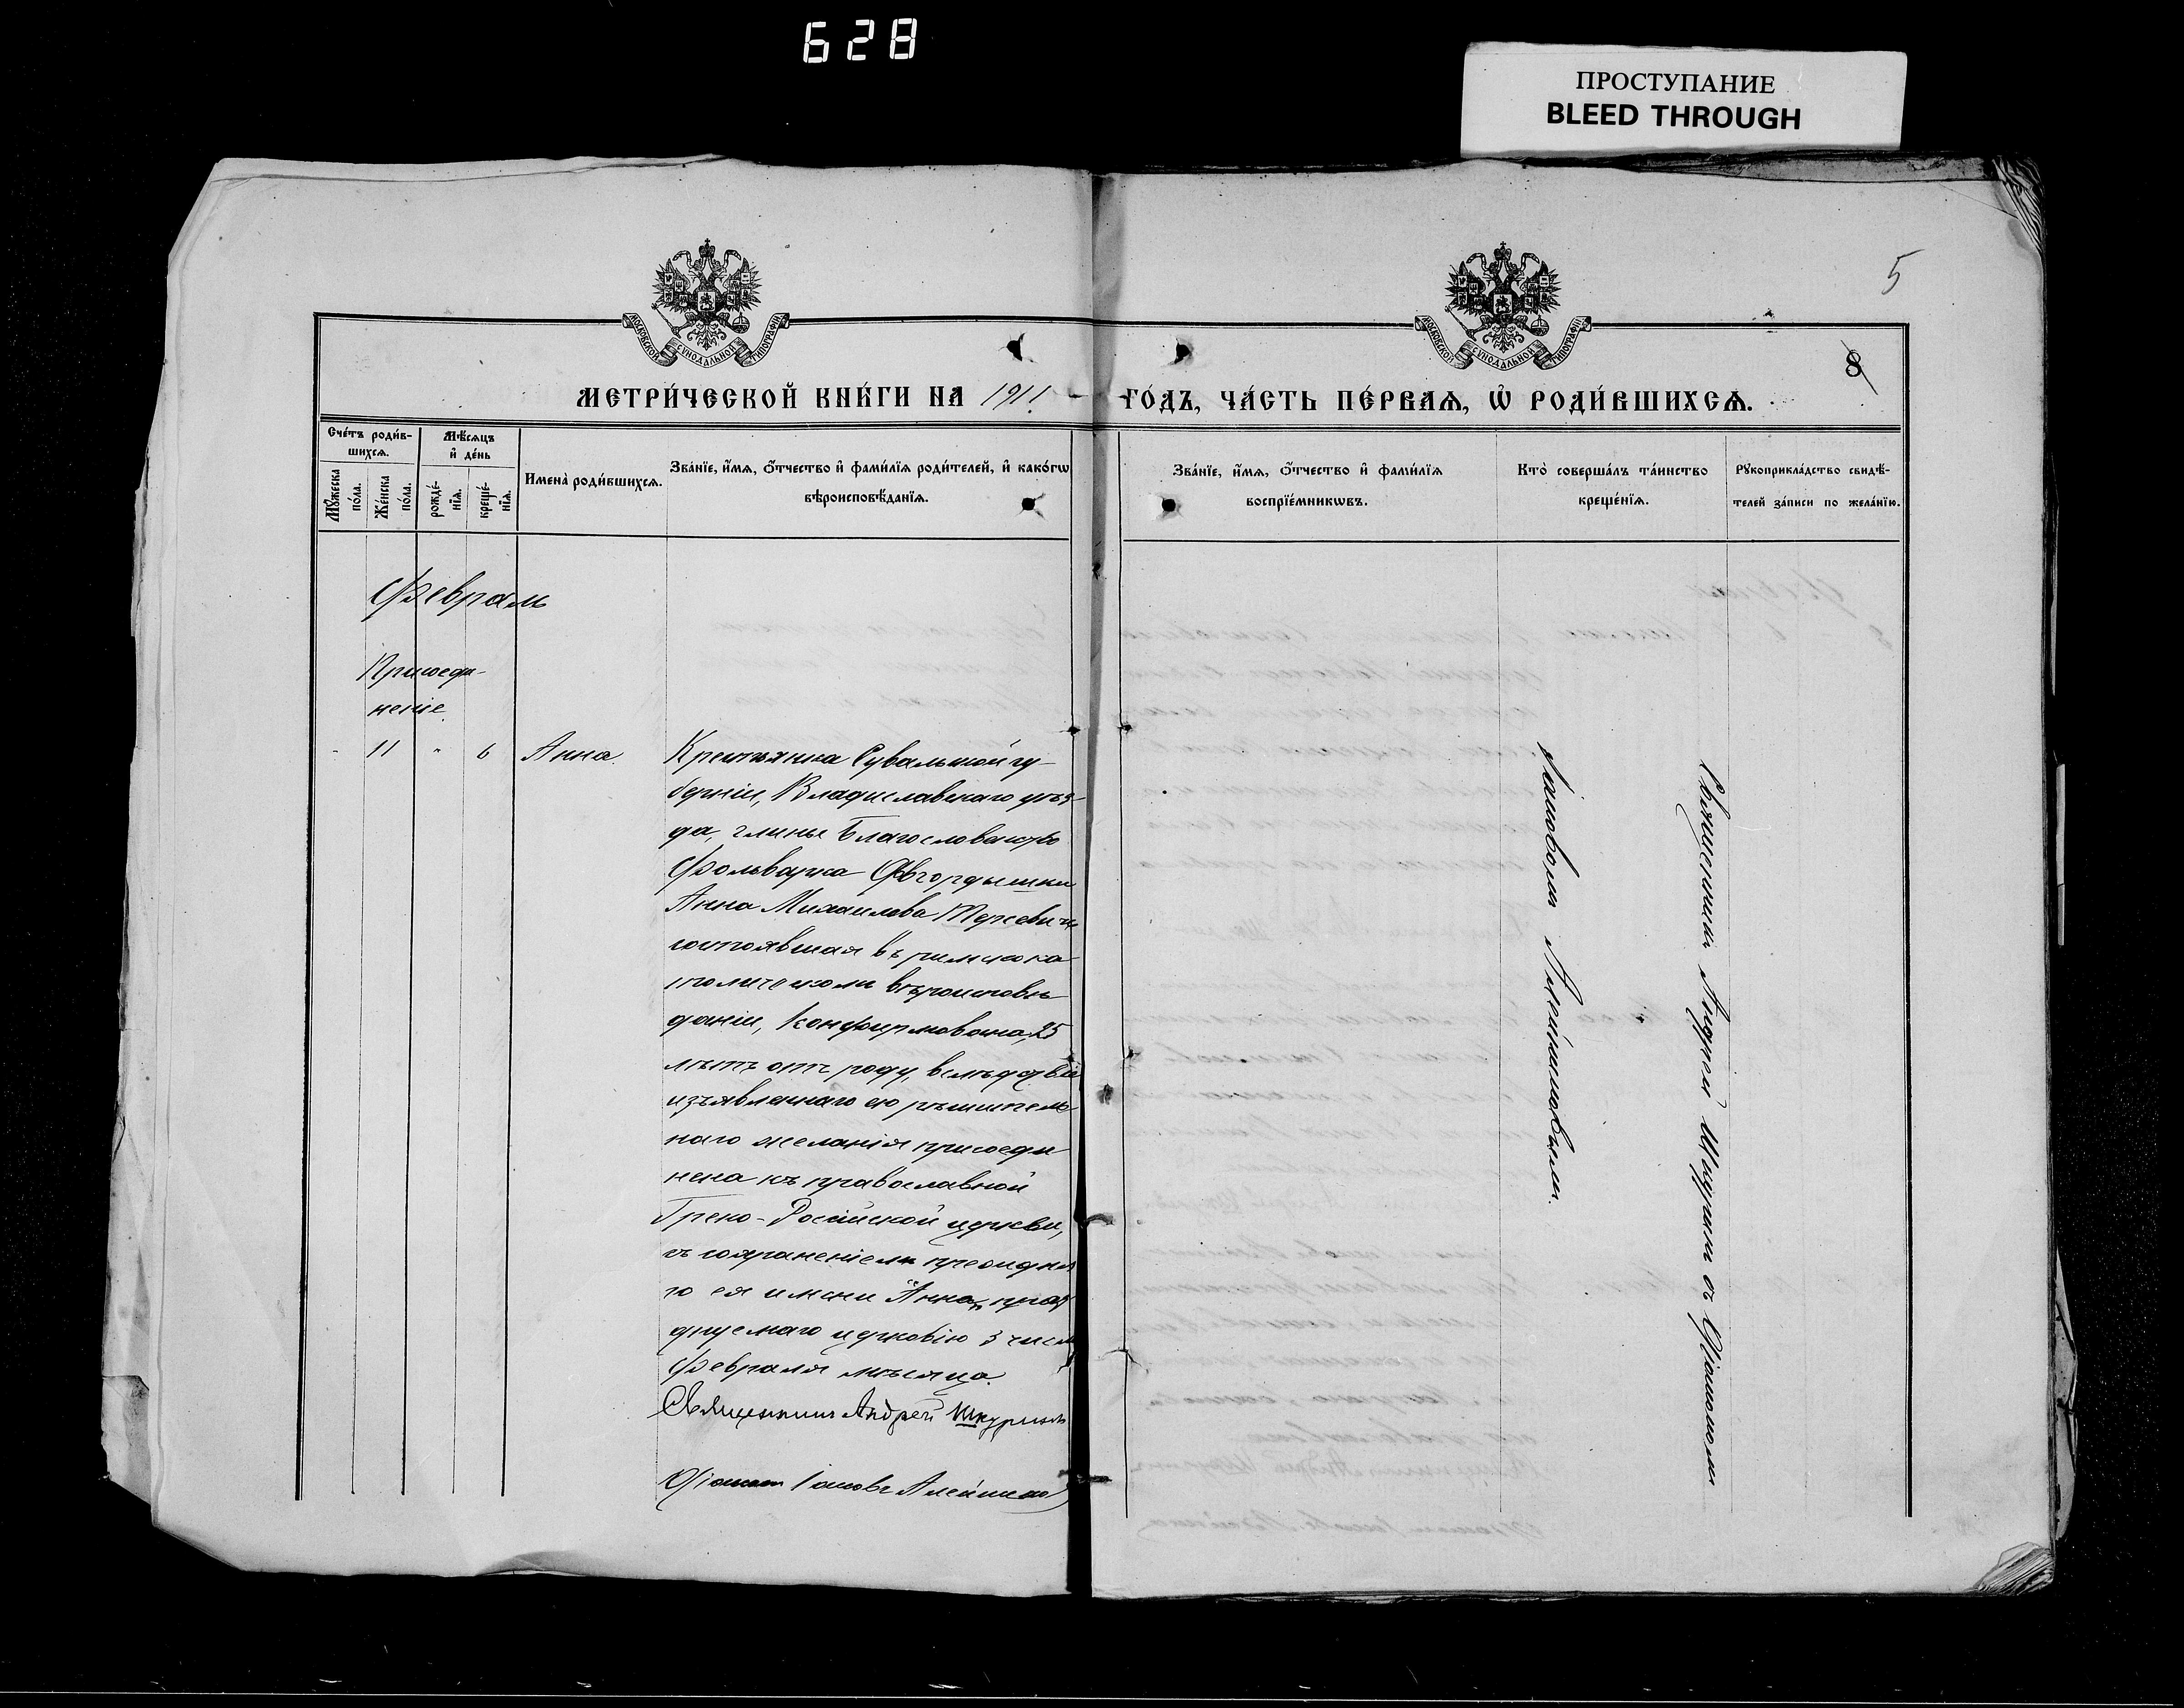 628
ПРОСТУПАНИЕ
BLEED THROUGH
5
МОСКОВСКОЙ СѴНОДАЛЬНОЙ ТИПОГРАФІИ
МОСКОВСКОЙ СѴНОДАЛЬНОЙ ТИПОГРАФІИ
8
МЕТРИ́ЧЕСКОЙ КНИ́ГИ НА 1911 ГО́ДЪ, ЧА́СТЬ ПЕ́РВАѦ, Ѡ҆ РОДИ́ВШИХСѦ.
Сче́тъ роди́в-
шихсѧ.
Мꙋжеска
по́ла.
Же́нска
по́ла.
Мѣ́сѧцъ
и҆ де́нь
рожде́-
нїѧ.
креще́-
нїѧ.
Имена̀ роди́вшихсѧ.
Зва́нїе, и҆́мѧ, ѻ҆́тчество и҆ фами́лїѧ роди́телей, и҆ како́гѡ
вѣроисповѣ́данїѧ.
Зва́нїе, и҆́мѧ, ѻ҆́тчество и҆ фами́лїѧ
воспрїе́мникѡвъ.
Кто̀ соверша́лъ та́инство
креще́нїѧ.
Рꙋкоприкла́дство свидѣ́-
телей за́писи по жела́нїю.
Февраль
Присоеди-
неніе.
- 11 " 6 Анна.
Крестьянка Сувалькой гу-
берніи, Владиславскаго уѣз-
да, гмины Благословенство
Фольварка
Анна Михаилова
состоявшая въ римскока-
толическомъ вѣроисповѣ-
даніи, конфирмована, 25
лѣтъ отъ роду, вслѣдствіе
изъявленнаго ею рѣшитель-
наго желанія присоеди-
нена къ православной
Греко-Россійской церкви,
съ сохраненіемъ прежня
го ея имени "Анна", праз
днуемаго церковію 3 числ
Февраля мѣсяца.
Священникъ Андрей Шкуринъ
Діаконъ Іаковъ Алейников
Священникъ Андрей Шкуринъ съ Діакономъ
Іаковомъ Алейниковымъ.